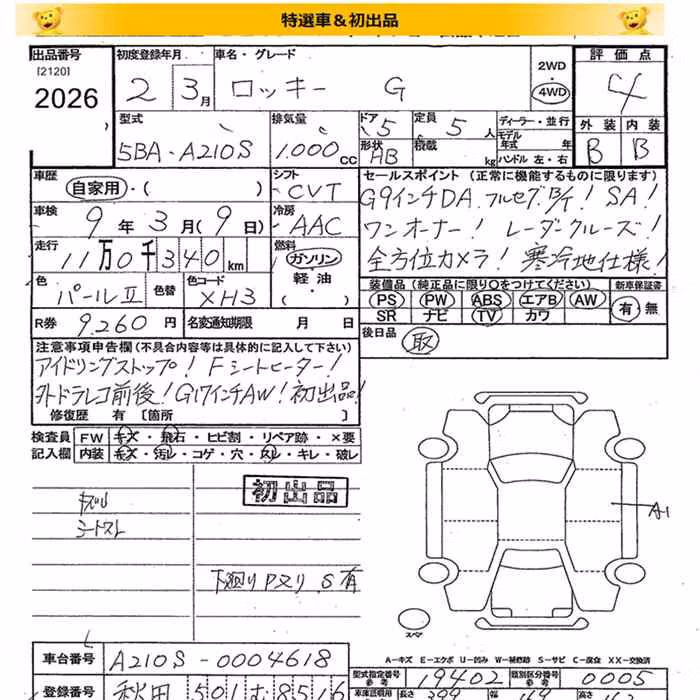 特選車＆初出品
出品番号 初度登録年月 車名・グレード 2WD 評価点
[2120] 2 3月 ロッキー G 4WD 4
2026
型式 排気量 ドア 5 定員 5人 ディーラー・並行 外装 内装
5BA-A210S 1.000cc 形状 HB 積載 kg モデル年式 年 B B
ハンドル 左・右
車歴 シフト セールスポイント (正常に機能するものに限ります)
自家用・( ) CVT G9インチDA.フルセグ.B/T! SA!
車検 冷房 ワンオーナー! レーダークルーズ!
9年3月(9日) AAC 全方位カメラ! 寒冷地仕様!
走行 燃料
11万0千340km ガソリン・軽油・( )
装備品 (純正品に限り○をつけてください) 新車保証書
色 色替 色コード PS PW ABS エアB AW 有・無
パールⅡ XH3 SR ナビ TV カワ
R券 9.260円 名変通知期限 月 日 後日品 取
注意事項申告欄 (不具合内容等は具体的に記入して下さい)
アイドリングストップ! Fシートヒーター!
外ドラレコ前後! G17インチAW! 初出品!
修復歴 有 〔箇所 〕
検査員 FW キズ・飛石・ヒビ割・リペア跡・×要
記入欄 内装 キズ・汚レ・コゲ・穴・スレ・キレ・破レ
初出品
シートスレ
A1
下廻りPヌリ.S有
スペア
A-キズ E-エクボ U-凹み W-補修跡 S-サビ C-腐食 XX-交換済
車台番号 A210S-0004618 型式指定番号 参考 19402 類別区分番号 参考 0005
登録番号 秋田 501 む 8516 車庫証明用 長さ 399 幅 高さ